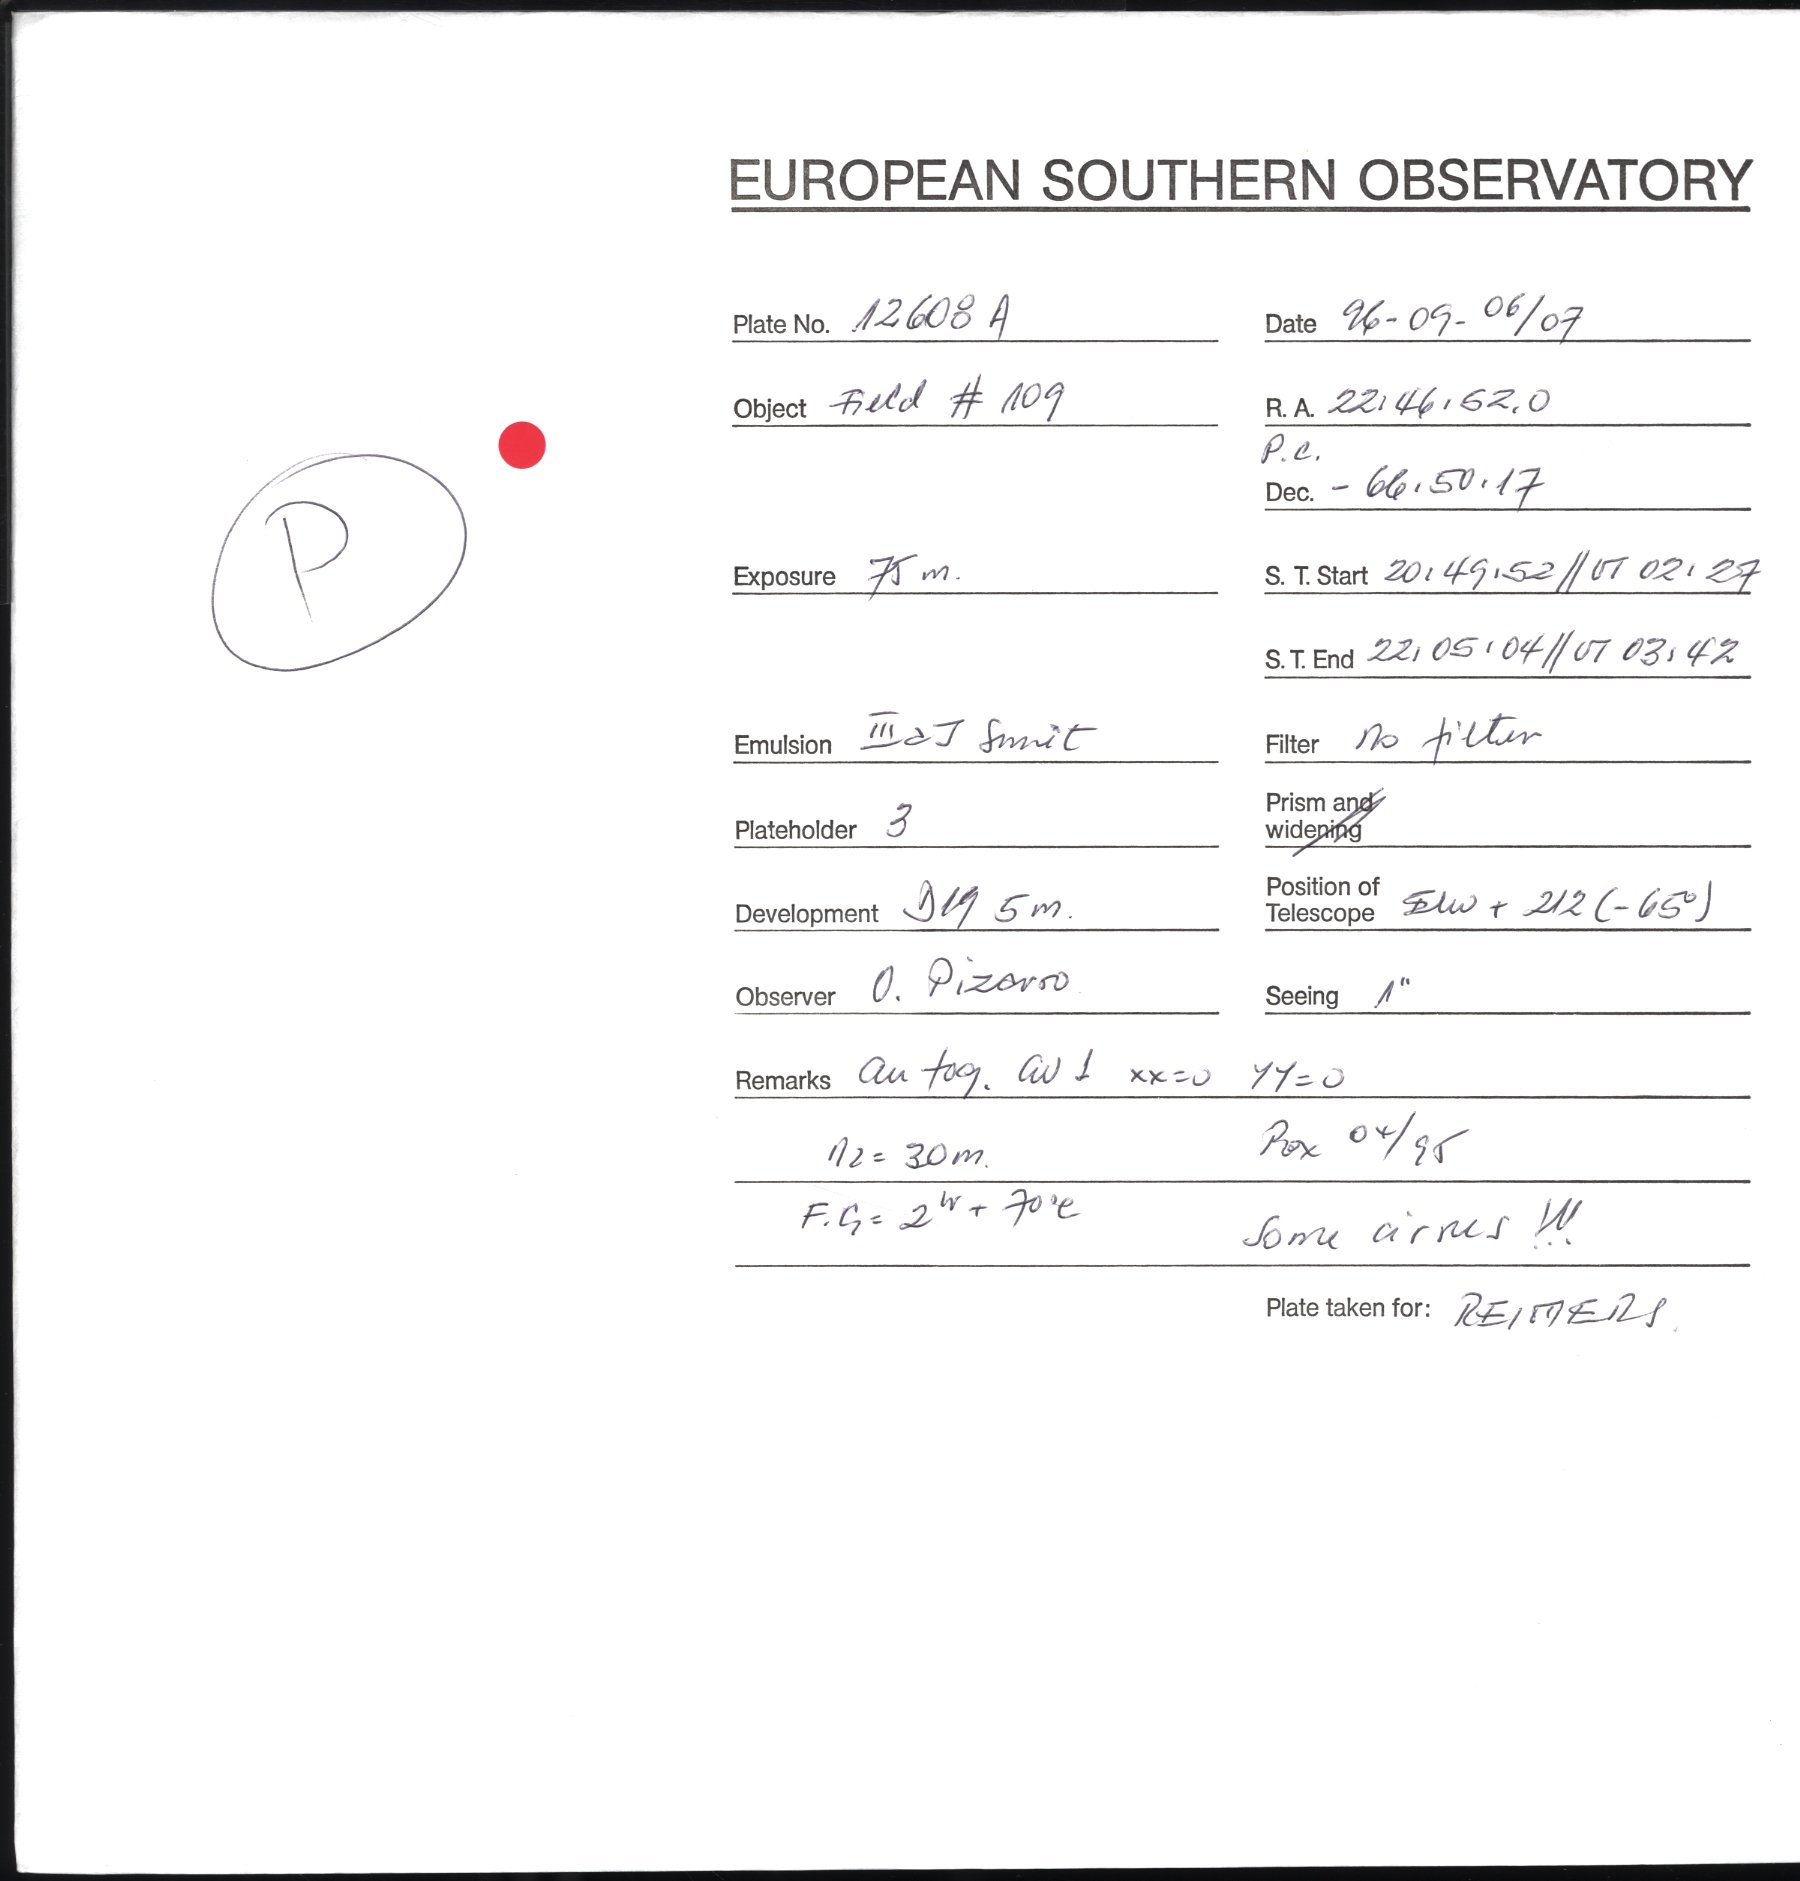 EUROPEAN SOUTHERN OBSERVATORY
Plate No. 12608 A
Date 96-09-06/07
Object Field # 109
R. A. 22:46:52.0
P.C.
Dec. - 66:50:17
P
Exposure 75 m.
S. T. Start 20:49:52 // UT 02:27
S. T. End 22:05:04 // UT 03:42
Emulsion III aJ
Filter No filter
Plateholder 3
Prism and
widening
Development D19 5 m.
Position of
Telescope + 212 (-65°)
Observer O. Pizarro
Seeing 1"
Remarks xx=0 YY=0
= 30 m. 04/95
F.G = 2 + 70
Some cirrus !!!
Plate taken for: REIMERS.